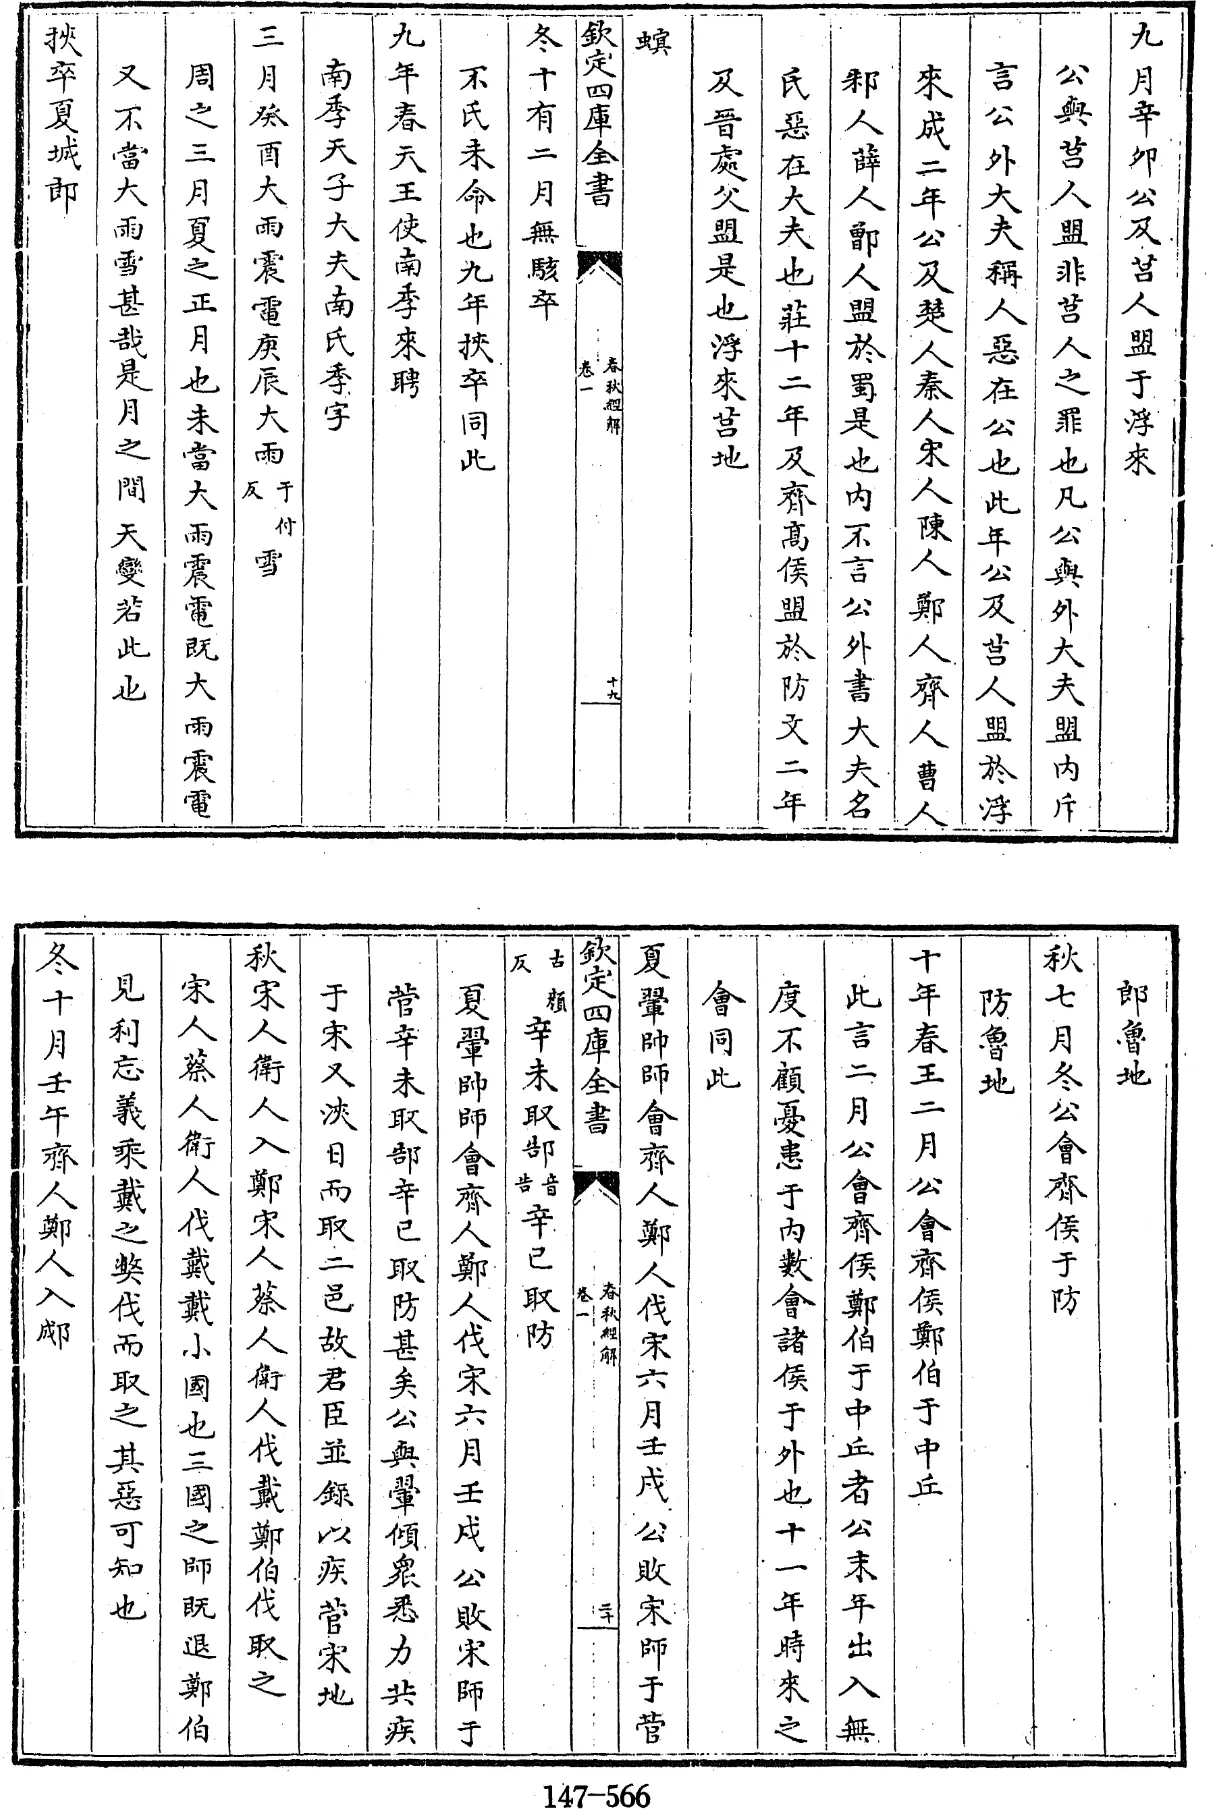 九月辛卯公及莒人盟于浮來
公與莒人盟非莒人之罪也凡公與外大夫盟内斥
言公外大夫稱人惡在公也此年公及莒人盟於浮
來成二年公及楚人秦人宋人陳人鄭人齊人曹人
邾人薛人鄫人盟於蜀是也内不言公外書大夫名
氏惡在大夫也莊十二年及齊髙傒盟於防文二年
及晉處父盟是也浮來莒地
螟
欽定四庫全書
春秋經解
卷一
十九
冬十有二月無駭卒
不氏未命也九年挾卒同此
九年春天王使南季來聘
南季天子大夫南氏季字
三月癸酉大雨震電庚辰大雨于付反雪
周之三月夏之正月也未當大雨震電既大雨震電
又不當大雨雪甚哉是月之間天變若此也
挾卒夏城郎
郎魯地
秋七月冬公會齊侯于防
防魯地
十年春王二月公會齊侯鄭伯于中丘
此言二月公會齊侯鄭伯于中丘者公末年出入無
度不顧憂患于内數會諸侯于外也十一年時來之
會同此
夏翬帥師會齊人鄭人伐宋六月壬戌公敗宋師于菅
欽定四庫全書
春秋經解
卷一
二十
古顏反辛未取郜音告辛巳取防
夏翬帥師會齊人鄭人伐宋六月壬戌公敗宋師于
菅辛未取郜辛巳取防甚矣公與翬傾衆悉力共疾
于宋又浹日而取二邑故君臣並錄以疾菅宋地
秋宋人衛人入鄭宋人蔡人衛人伐戴鄭伯伐取之
宋人蔡人衛人伐戴戴小國也三國之師既退鄭伯
見利忘義乘戴之弊伐而取之其惡可知也
冬十月壬午齊人鄭人入郕
147-566